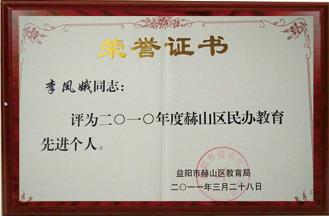 荣誉证书
李凤娥同志：
评为二〇一〇年度赫山区民办教育
先进个人。
益阳市赫山区教育局
二〇一一年三月二十八日